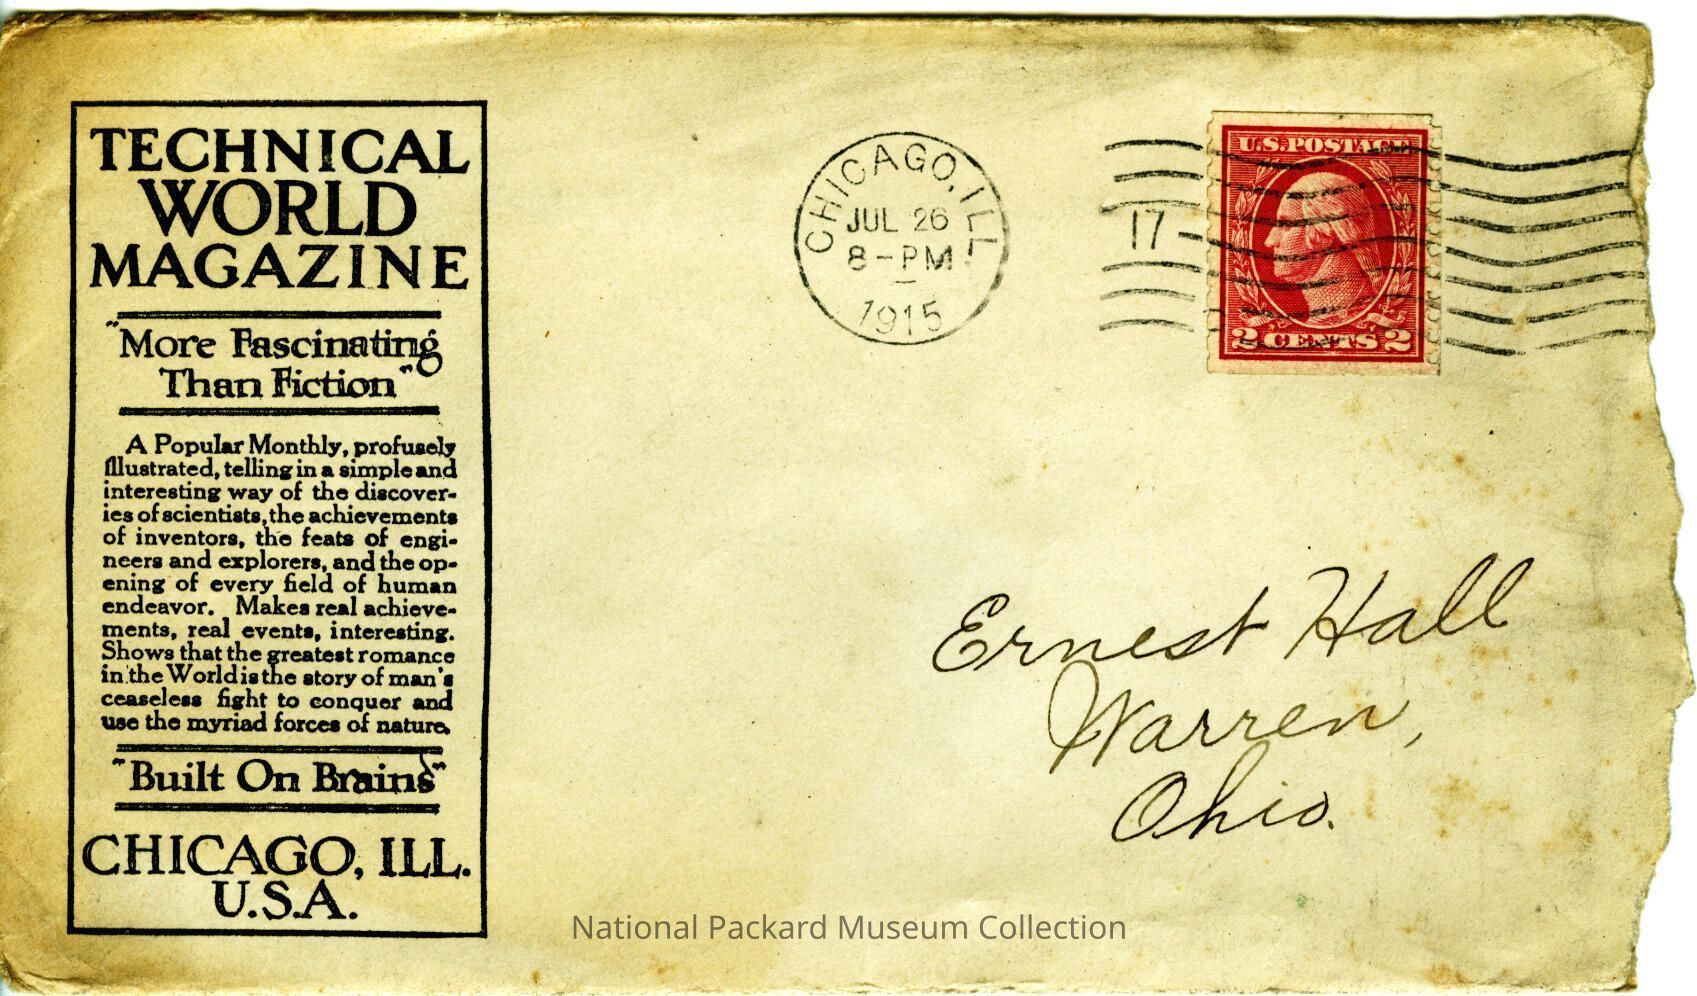 TECHNICAL
WORLD
MAGAZINE
"More Fascinating
Than Fiction"
A Popular Monthly, profusely
illustrated, telling in a simple and
interesting way of the discover-
ies of scientists, the achievements
of inventors, the feats of engi-
neers and explorers, and the op-
ening of every field of human
endeavor. Makes real achieve-
ments, real events, interesting.
Shows that the greatest romance
in the World is the story of man's
ceaseless fight to conquer and
use the myriad forces of nature.
"Built On Brains"
CHICAGO, ILL.
U.S.A.
CHICAGO, ILL.
JUL 26
8-PM
1915
17
U.S. POSTAGE
2 CENTS 2
Ernest Hall
Warren,
Ohio.
National Packard Museum Collection